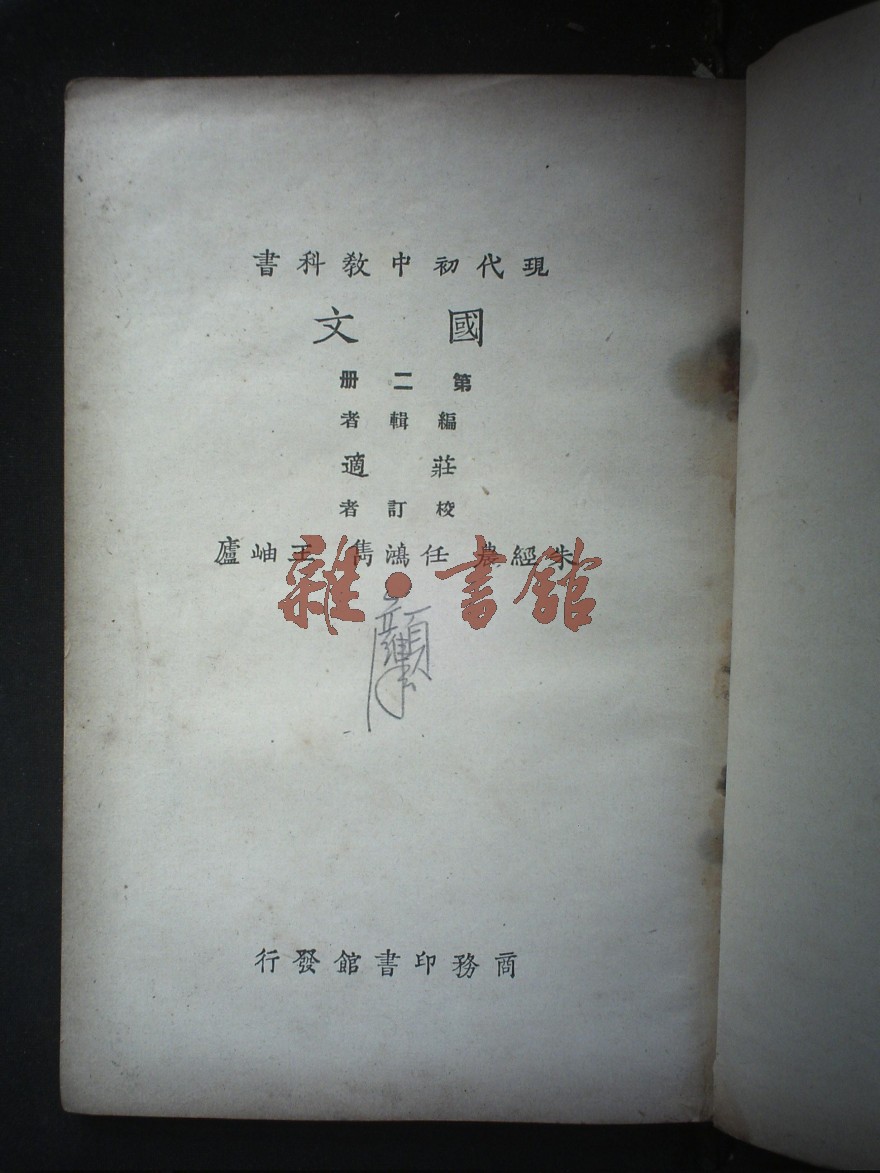 現代初中教科書
國文
第二册
編輯者
莊適
校訂者
朱經農 任鴻雋 王岫廬
雜·書館
商務印書館發行